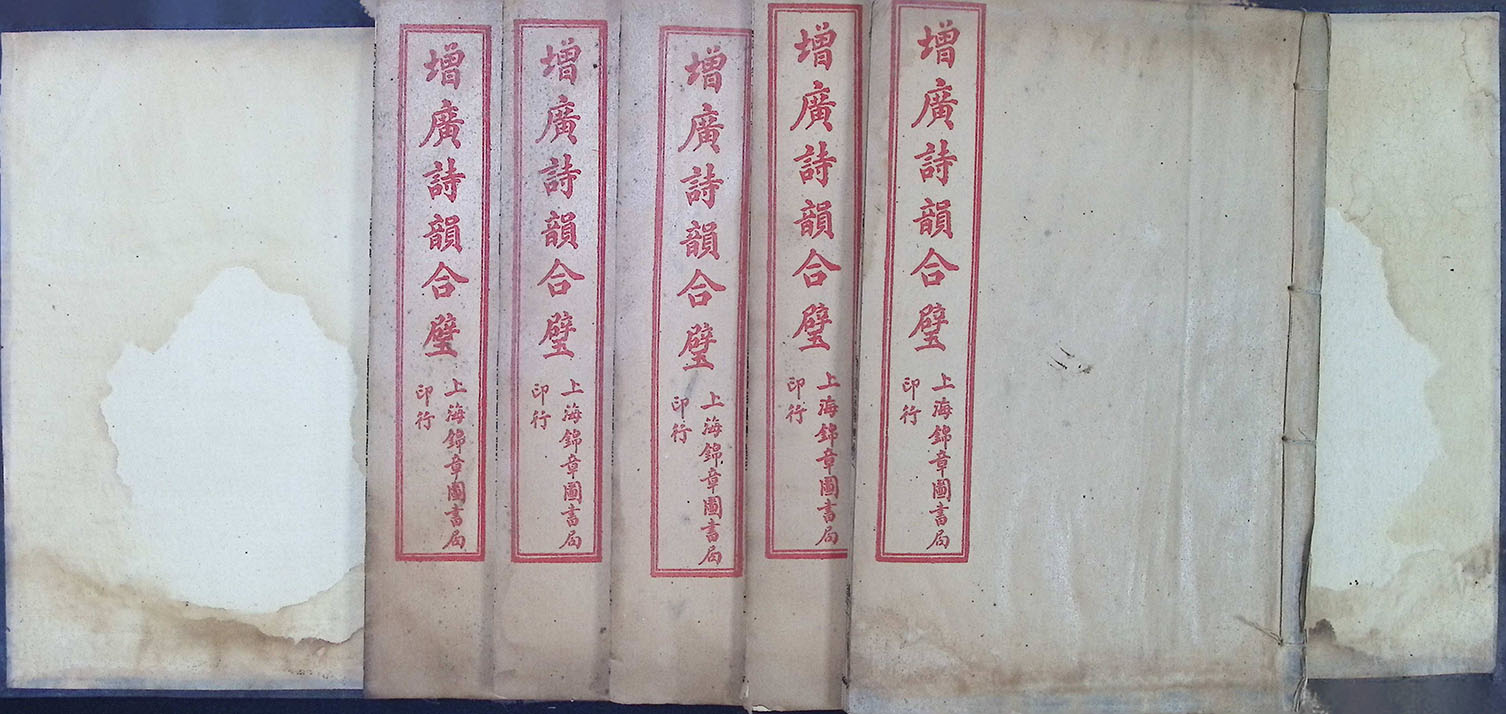 增廣詩韻合璧
上海錦章圖書局
印行
增廣詩韻合璧
上海錦章圖書局
印行
增廣詩韻合璧
上海錦章圖書局
印行
增廣詩韻合璧
上海錦章圖書局
印行
增廣詩韻合璧
上海錦章圖書局
印行